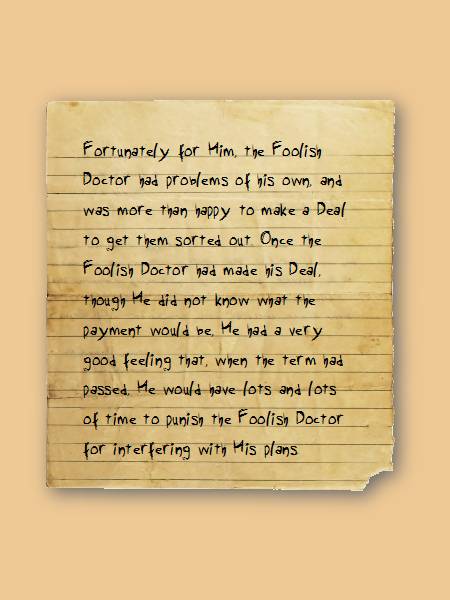 Fortunately for Him, the Foolish
Doctor had problems of his own, and
was more than happy to make a Deal
to get them sorted out. Once the
Foolish Doctor had made his Deal,
though He did not know what the
payment would be, He had a very
good feeling that, when the term had
passed, He would have lots and lots
of time to punish the Foolish Doctor
for interfering with His plans